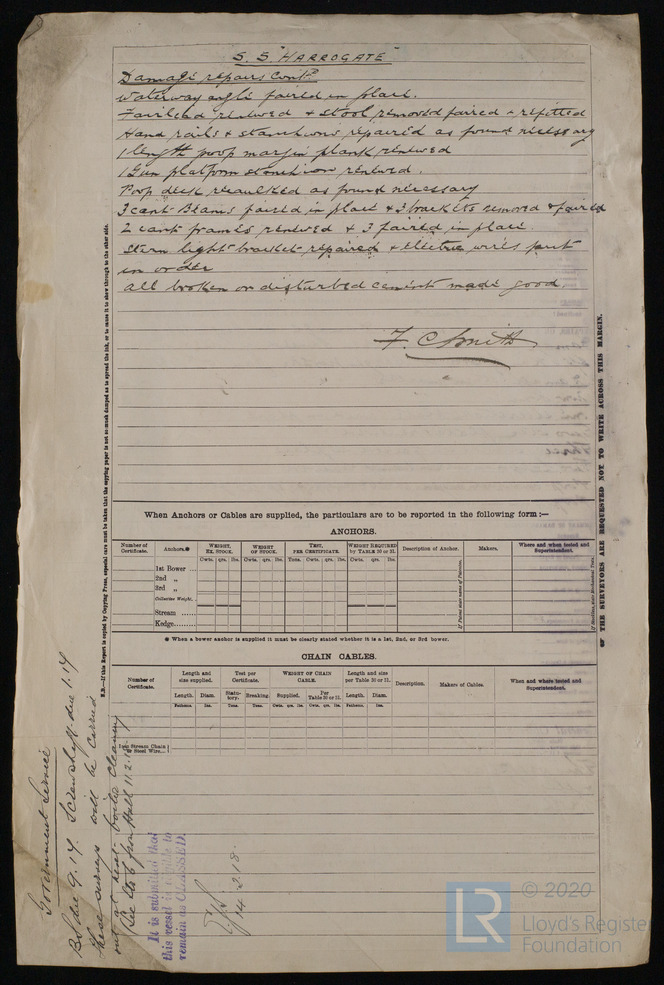 S.S. "HARROGATE"
Damage repairs Contd
Waterway angle faired in place.
Fairlead renewed & stool removed faired & refitted
Hand rails & stanchions repaired as found necessary
1 length poop margin plank renewed
1 Gun platform stanchion renewed.
Poop deck recaulked as found necessary
3 cant Beams faired in place & 3 brackets removed & faired
2 cant frames renewed & 3 faired in place
Stern light bracket repaired & electric wires put
in order
All broken or disturbed cement made good
F. C Smith
When Anchors or Cables are supplied, the particulars are to be reported in the following form :—
ANCHORS.
Number of Certificate. Anchors.* WEIGHT, EX. STOCK. WEIGHT OF STOCK. TEST, PER CERTIFICATE. WEIGHT REQUIRED by TABLE 30 or 31. Description of Anchor. Makers. Where and when tested and Superintendent.
Cwts. qrs. lbs. Cwts. qrs. lbs. Tons. Cwts. qrs. lbs. Cwts. qrs. lbs.
1st Bower ...
2nd „
3rd „
Collective Weight.
Stream ......
Kedge........
If Patent state name of Patentee.
* When a bower anchor is supplied it must be clearly stated whether it is a 1st, 2nd, or 3rd bower.
CHAIN CABLES.
Number of Certificate. Length and size supplied. Test per Certificate. WEIGHT OF CHAIN CABLE. Length and size per Table 30 or 31. Description. Makers of Cables. When and where tested and Superintendent.
Length. Diam. Statutory. Breaking. Supplied. Per Table 30 or 31. Length. Diam.
Fathoms. Ins. Tons. Tons. Cwts. qrs. lbs. Cwts. qrs. lbs. Fathoms. Ins.
Stream Chain
or Steel Wire...
N.B.—If this Report is copied by Copying Press, especial care must be taken that the copying paper is not so much damped as to spread the ink, or to cause it to show through to the other side.
THE SURVEYORS ARE REQUESTED NOT TO WRITE ACROSS THIS MARGIN.
Government Service
BS due 9.17. Screwshaft due 1.17
these surveys will be carried
out at next boiler cleaning
See Ltr from Hull 11.2.18
It is submitted that
this vessel is eligible to
remain as CLASSED.
14.2.18.
© 2020
LR
Lloyd's Register
Foundation